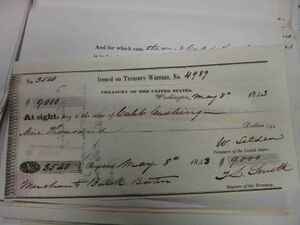 And for which sum the said Caleb
No. 3540 Issued on Treasury Warrant, No. 4989
TREASURY OF THE UNITED STATES.
$ 9000 Washington, May 8th 1843
At sight, Pay to the order of Caleb Cushing
Nine thousand Dollars
W Selden
Treasurer of the United States.
No. 3540 Registered May 8th 1843 $ 9000
Merchants Bank Boston T. L. Smith
Register of the Treasury.